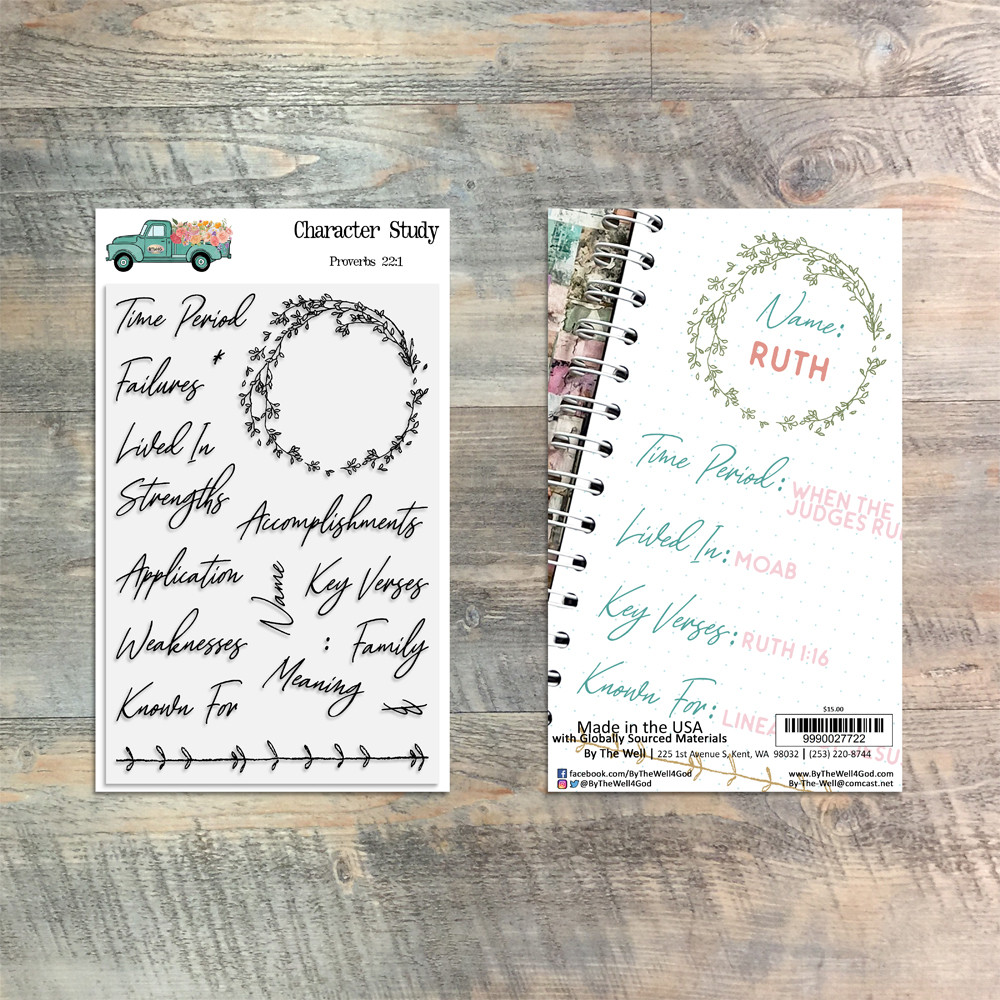 Character Study
Proverbs 22:1
Time Period
*
Failures
Lived In
Strengths
Accomplishments
Application
Name
Key Verses
Weaknesses
:
Family
Meaning
Known For
Name:
RUTH
Time Period:
WHEN THE
JUDGES RU
Lived In: MOAB
Key Verses: RUTH 1:16
Known For: LINEA
SU
$15.00
Made in the USA
with Globally Sourced Materials
9990027722
By The Well | 225 1st Avenue S, Kent, WA 98032 | (253) 220-8744
facebook.com/ByTheWell4God
www.ByTheWell4God.com
@ByTheWell4God
By-The-Well@comcast.net